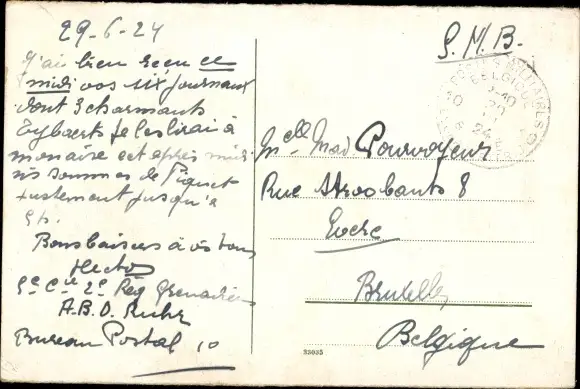 29-6-24
J'ai bien reçu ce
midi vos six journaux
dont 3 charmants
je les lirai à
mon aise cet après midi
ns sommes de Piquet
justement jusqu'à
5h.
Bons baisers à vs tous
Hector
5e Cie 2e Reg Grenadiers
A.B.O. Ruhr
Bureau Postal 10
S.M.B.
POSTES MILITAIRES
BELGIQUE
Melle Mad Pourvoyeur
Rue Stroobants 8
Evere
Bruxelles
Belgique
23035